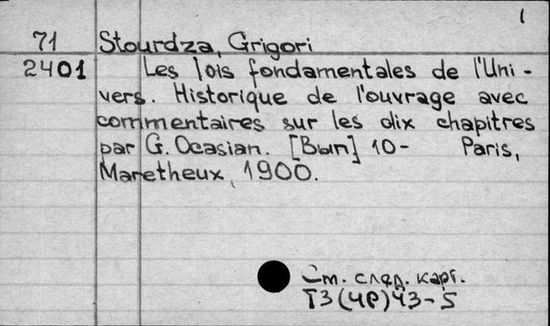 1
71 Stourdza, Grigori
2401 Les lois fondamentales de l'Uni-
vers. Historique de l'ouvrage avec
commentaires sur les dix chapitres
par G. Ocasian. [Вып] 10- Paris,
Maretheux, 1900.
См. след. карт.
T3(4P)43-5